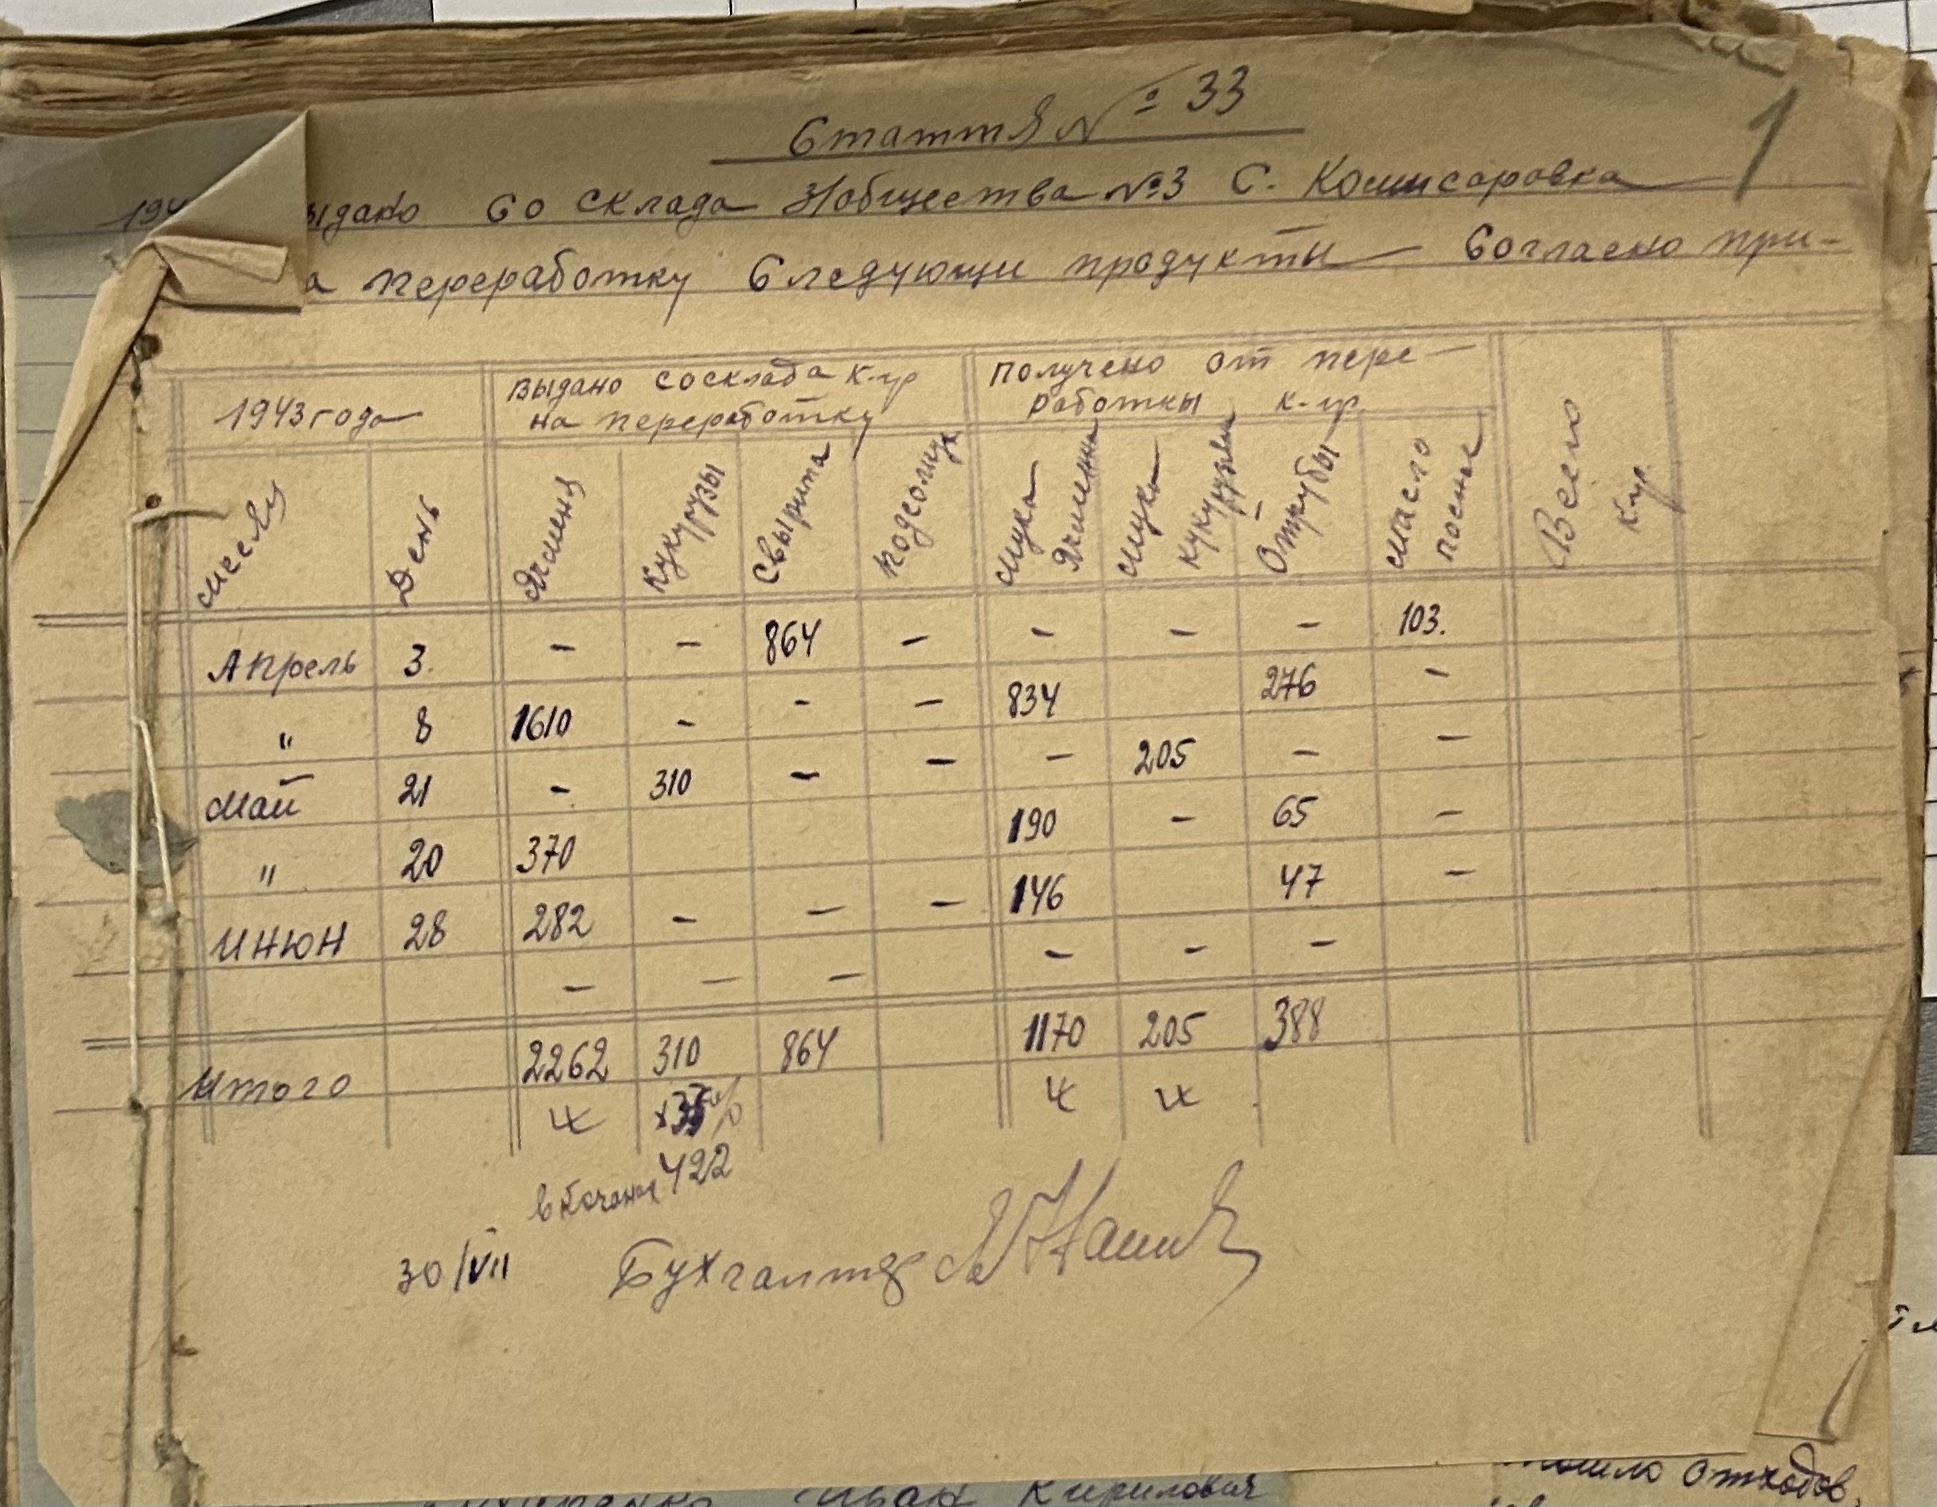 Стаття № 33
1
194 ыдано Со Склада Н/общества №3 С. Комисаровка
а переработку Следующи продукты Согласно при-
1943 года
выдано со склада к-гр
на переработку
получено от пере-
работкы к-гр.
Всего
к-гр.
месяц
День
Ячменя
Кукурузы
Свырыпа
Подсолнца
Мука
Ячменна
Мука
кукурузян
Отрубы
Масло
посное
Апрель 3. - - 864 - - - - 103.
" 8 1610 - - - 834 276 -
Май 21 - 310 - - - 205 - -
" 20 370 190 - 65 -
ИНЮН 28 282 - - - 146 47 -
- - - - - -
Итого 2262 310 864 1170 205 388
в кочанах 422
30/VII Бухгалтер
Иван Кирилович
отходов